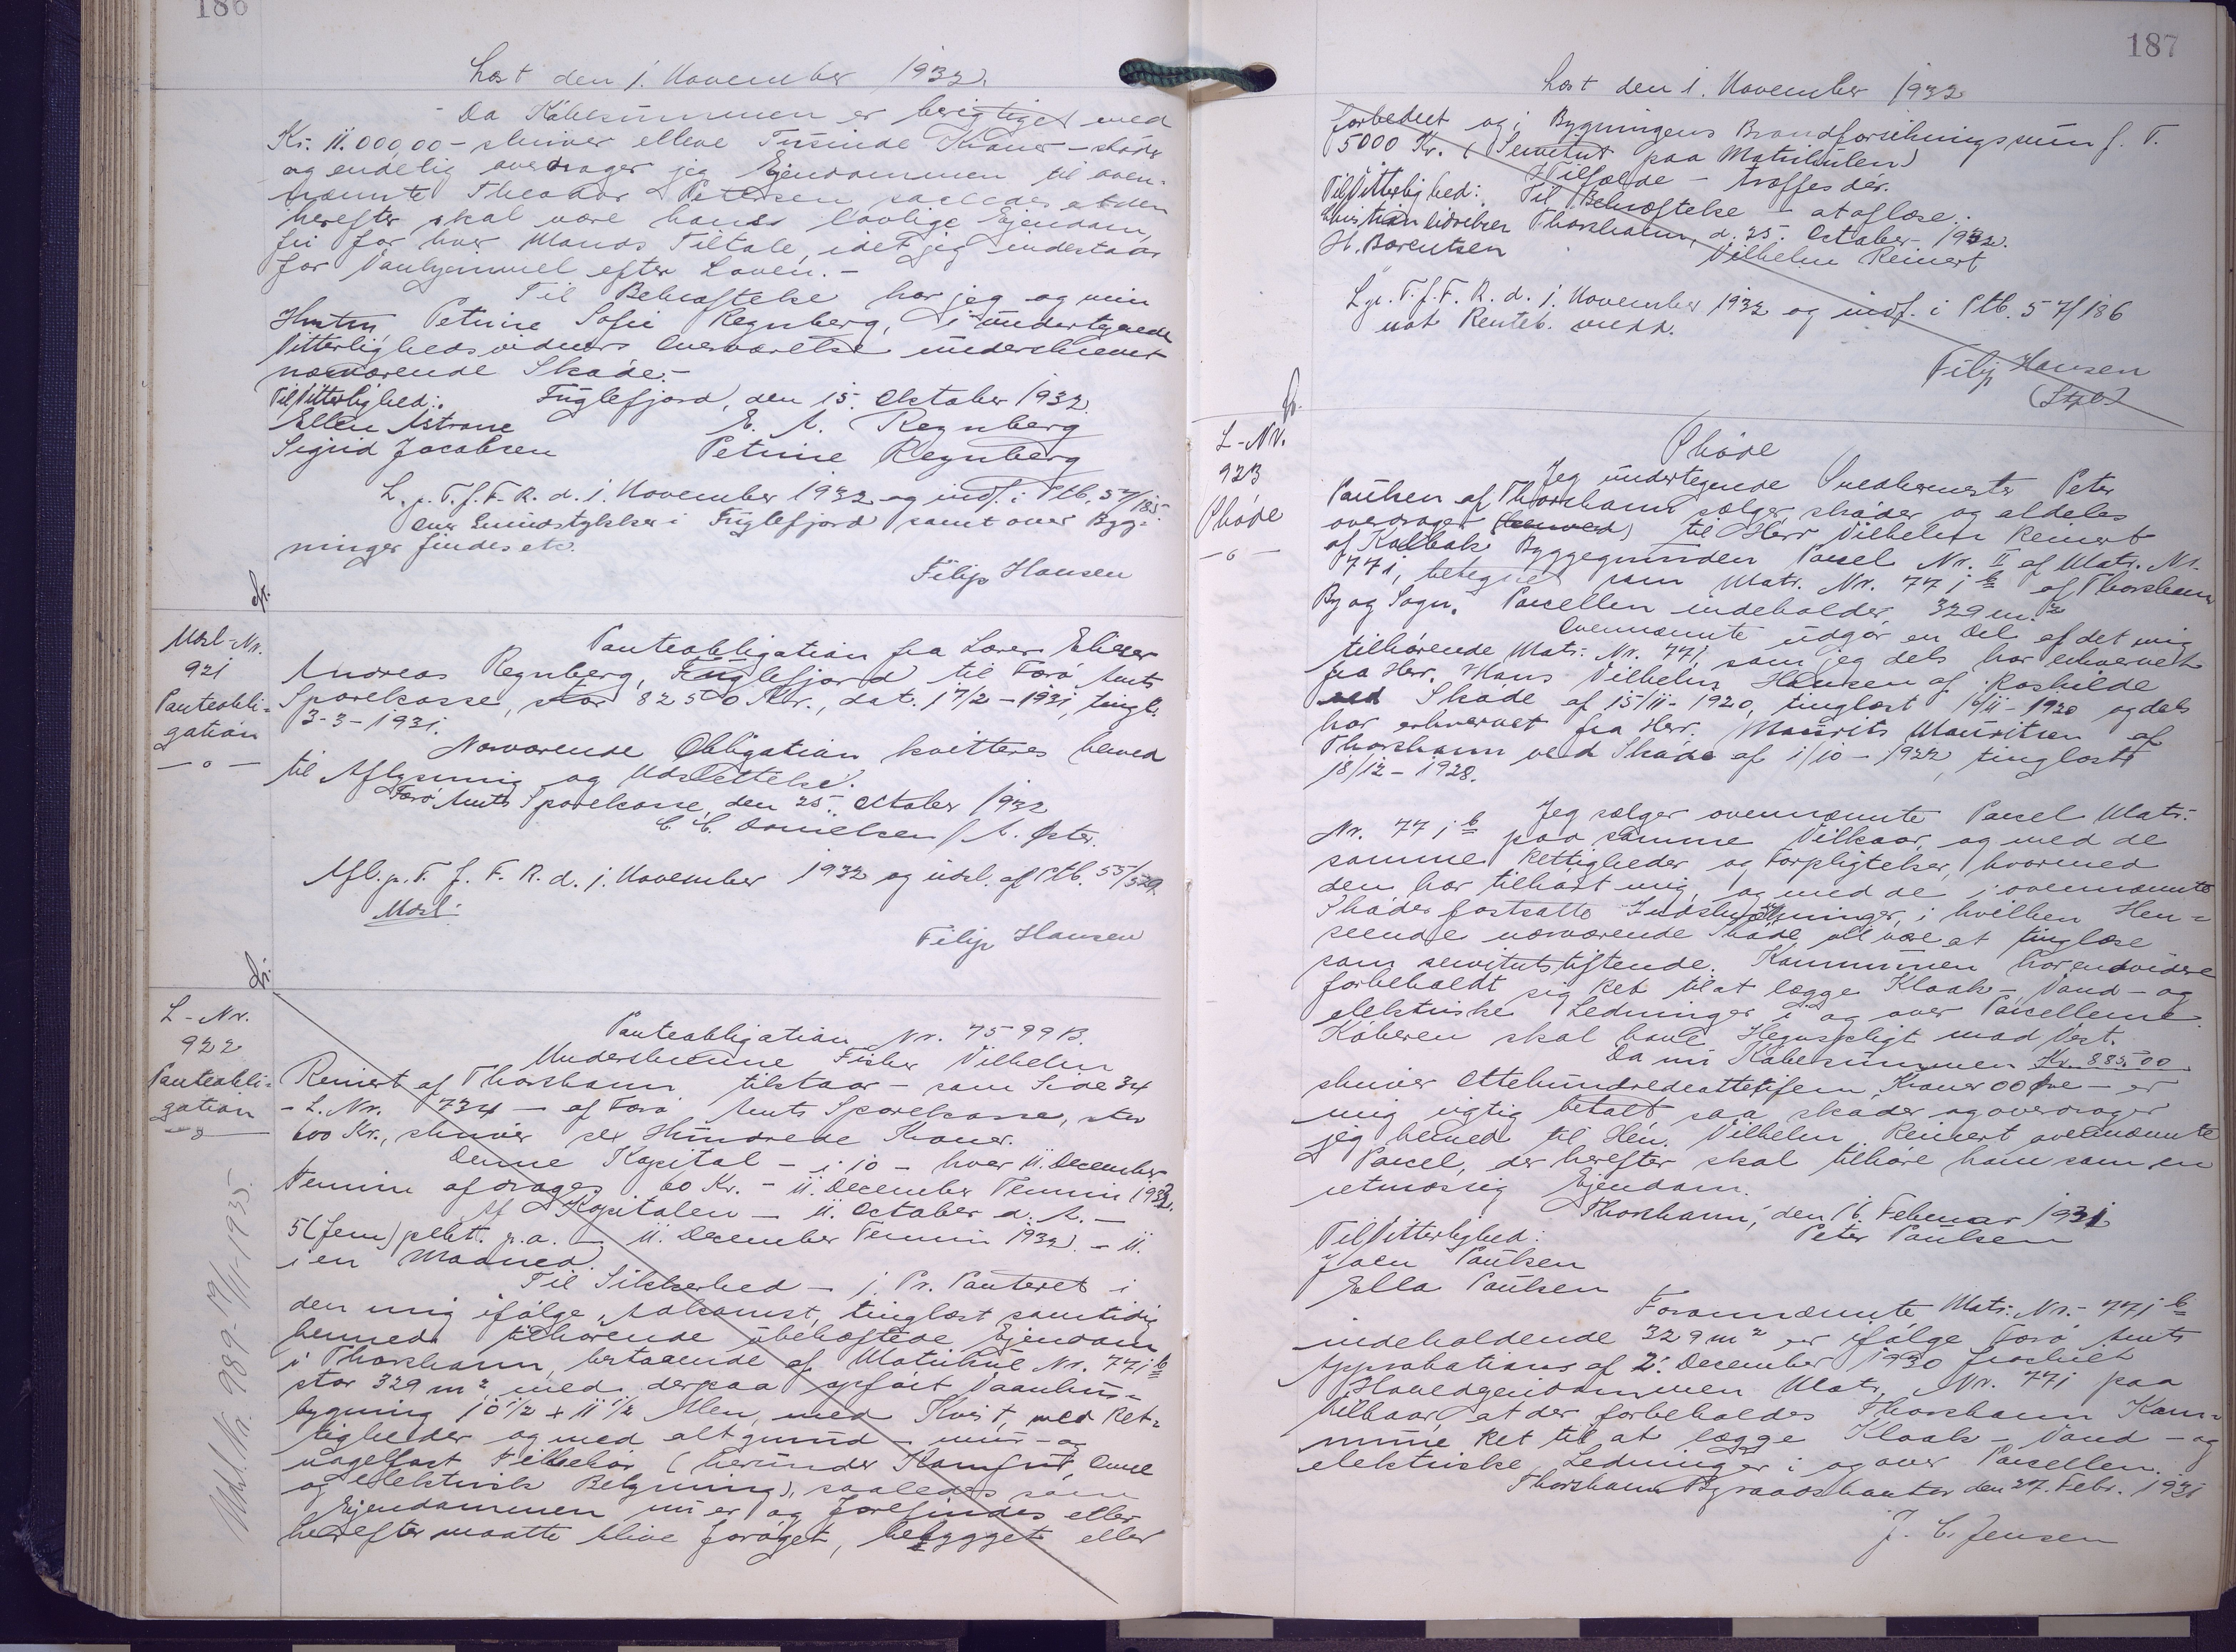 186
Læst den 1. November 1932.
Da Købesummen er berigtiget med
Kr. 11.000,00 - skriver elleve Tusinde Kroner - skøder
og endelig overdrager jeg Ejendommen til oven-
nævnte Theodor Petersen saaledes at den
herefter skal være hans lovlige Ejendom,
fri for hver Mands Tiltale, idet jeg indestaar
for Vanhjemmel efter Loven. -
Til Bekræftelse har jeg og min
Hustru Petrine Sofie Regnberg, i undertegnede
Vitterlighedsvidners Overværelse underskrevet
nærværende Skøde. -
Til Vitterlighed: Fuglefjord, den 15. Oktober 1932.
Ellen Astrone E. A. Regnberg
Sigrid Jacobsen Petrine Regnberg
L. p. T. f. F. R. d. 1. November 1932 og indf. i Ptb. 57/185
Over Grundstykker i Fuglefjord samt over Byg-
ninger findes etc.
Filip Hansen
fr.
Udsl-Nr.
921
Panteobli-
gation
- o -
Panteobligation fra Lærer Elieser
Andreas Regnberg, Fuglefjord til Færø Amts
Sparekasse, stor 8250 Kr., dat. 17/2 - 1931, tingl.
3-3-1931.
Nærværende Obligation kvitteres herved
til Aflysning og Udslettelse.
Færø Amts Sparekasse, den 25. Oktober 1932
C. C. Danielsen / A. Øster.
Afl. p. T. f. F. R. d. 1. November 1932 og udsl. af Ptb. 55/529.
Udsl.
Filip Hansen
fr.
L-Nr.
922
Panteobli-
gation
- o -
Udsl. Nr. 989 - 19/11-1935.
Panteobligation Nr. 7599 B.
Underskrevne Fisker Vilhelm
Reinert af Thorshavn tilstaar - som Side 34
- L. Nr. 734 - af Færø Amts Sparekasse, stor
600 Kr., skriver sex Hundrede Kroner.
Denne Kapital - i 10 - hver 11. December
Termin afdrages 60 Kr. - 11. December Termin 1933.
Af Kapitalen - 11. October d. A. -
5 (fem) pCt. p.a. - 11. December Termin 1932 - 11.
i en Maaned.
Til Sikkerhed - 1. Pr. Panteret i
den mig ifølge Adkomst, tinglæst samtidig
hermed tilhørende ubehæftede Ejendom
i Thorshavn, bestaaende af Matrikul Nr. 77 i b
stor 329 m² med derpaa opført Vaanhus-
bygning 10 1/2 + 11 1/2 Alen, med Kvist, med Ret-
tigheder og med alt grund- mur- og
nagelfast Tilbehør (herunder Komfur, Ovne
og elektrisk Belysning), saaledes som
Ejendommen nu er og forefindes eller
herefter maatte blive forøget, bebygget eller
187
Læst den 1. November 1932
forbedret og i Bygningens Brandforsikringssum f. T.
5000 Kr. (Servitut paa Matrikulen)
I Tilfælde - træffes dér.
Til Vitterlighed: Til Bekræftelse - at aflæse.
Thorshavn, d. 25. October 1932.
H. Barentsen Vilhelm Reinert
L. p. T. f. F. R. d. 1. November 1932 og indf. i Ptb. 57/186
not Renteb. medd.
Filip Hansen
(Stpl.)
fr.
L-Nr.
923
Skøde
- o -
Skøde
Jeg undertegnede Snedkermester Peter
Paulsen af Thorshavn sælger, skøder og aldeles
overdrager (herved) til Herr Vilhelm Reinert
af Kaldbak Byggegrunden Parcel Nr. II af Matr. Nr.
77 i, betegnet som Matr. Nr. 77 i b af Thorshavn
By og Sogn. Parcellen indeholder 329 m.²
Ovennævnte udgør en Del af det mig
tilhørende Matr. Nr. 77 i, som jeg dels har erhvervet
fra Herr. Hans Vilhelm Hansen af Roskilde
ved Skøde af 15/11-1920, tinglæst 16/11-1920 og dels
har erhvervet fra Herr. Maurits Mauritsen af
Thorshavn ved Skøde af 1/10-1922, tinglæst
18/12-1928.
Jeg sælger ovennævnte Parcel Matr.
Nr. 77 i b paa samme Vilkaar, og med de
samme Rettigheder og Forpligtelser, hvormed
den har tilhørt mig, og med de i ovennævnte
Skøder fastsatte Indskrænkninger, i hvilken Hen-
seende nærværende Skøde vil være at tinglæse
som servitutstiftende. Kommunen har endvidere
forbeholdt sig Ret til at lægge Kloak- Vand- og
elektriske Ledninger i og over Parcellerne.
Køberen skal have Hegnspligt mod Vest.
Da nu Købesummen Kr. 885.00
skriver Ottehundredeottetifem Kroner 00 Øre - er
mig rigtig betalt saa skøder og overdrager
jeg herved til Hen. Vilhelm Reinert ovennævnte
Parcel, der herefter skal tilhøre ham som en
retmæssig Ejendom.
Thorshavn, den 16. Februar 1931
Til Vitterlighed: Peter Paulsen
Joen Paulsen
Ella Paulsen
Forannævnte Matr. Nr. - 77 i b
indeholdende 329 m² er ifølge Færø Amts
Approbations af 2. December 1930 fraskilt
Hovedejendommen Matr. Nr. 77 i paa
Vilkaar, at der forbeholdes Thorshavn Kom-
mune Ret til at lægge Kloak- Vand- og
elektriske Ledninger i og over Parcellen.
Thorshavn Byraadskontor den 27. Febr. 1931
J. C. Jensen